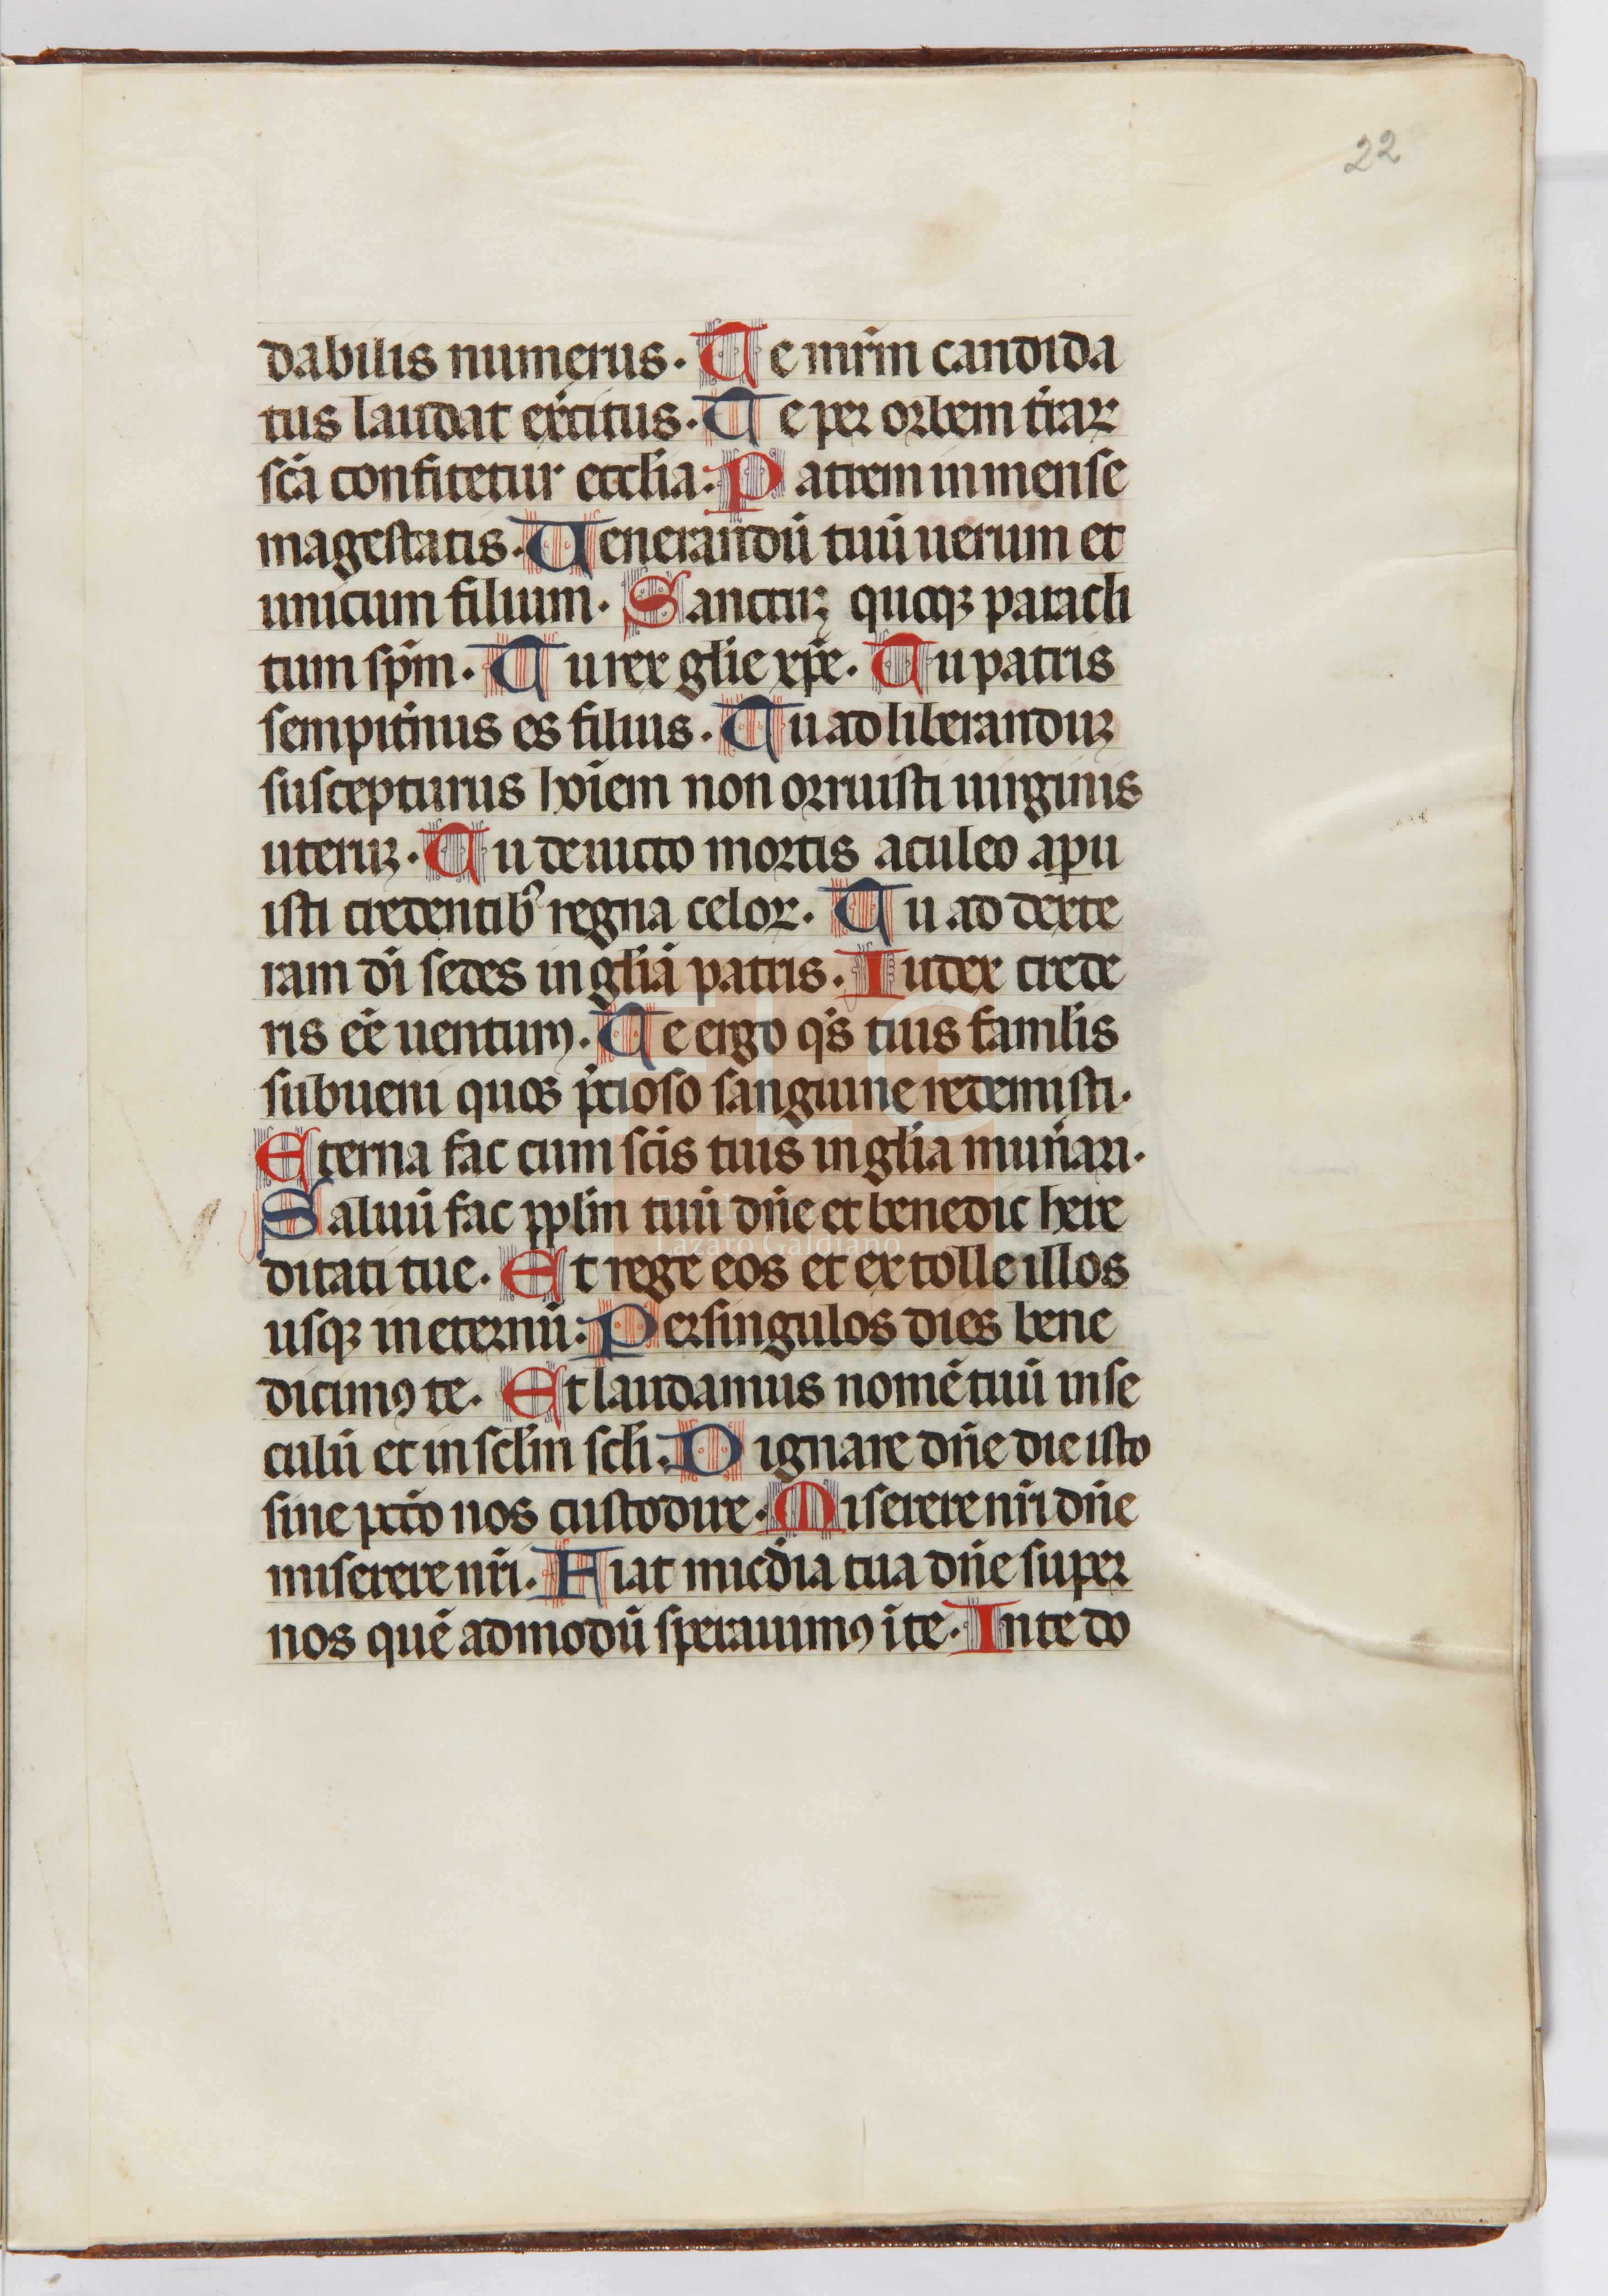 22
dabilis numerus. Te mr̄m candida
tus laudat exc̄itus. Te per orbem t̄raꝝ
sc̄a confitetur eccl̄ia. Patrem inmense
magestatis. Uenerandū tuū uerum et
unicum filium. Sanctuꝫ quoqꝫ paracli
tum sp̄m. Tu rex gl̄ie xp̄e. Tu patris
sempit̄nus es filius. Tu ad liberanduꝫ
suscepturus ho̅iem non orruisti uirginis
uteruꝫ. Tu deuicto mortis aculeo apu
isti credentibꝰ regna celoꝝ. Tu ad dexte
ram dī sedes in gl̄iā patris. Iudex crede
ris eē uenturꝰ. Te ergo qs̄ tuis famul̄is
subueni quos p̄cioso sanguine redemisti.
Eterna fac cum sc̄is tuis in gl̄ia mun̄ari.
Saluū fac ppl̄m tuū dn̄e et benedic here
ditati tue. Et rege eos et extolle illos
usqꝫ in eternū. Per singulos dies bene
dicimꝰ te. Et laudamus nomē tuū in se
culū et in secl̄m sc̄li. Dignare dn̄e die isto
sine pcc̄o nos custodire. Miserere nr̄i dn̄e
miserere nr̄i. Fiat mic̄dia tua dn̄e super
nos quē admodū sperauimꝰ ī te. In te do
Lázaro Galdiano